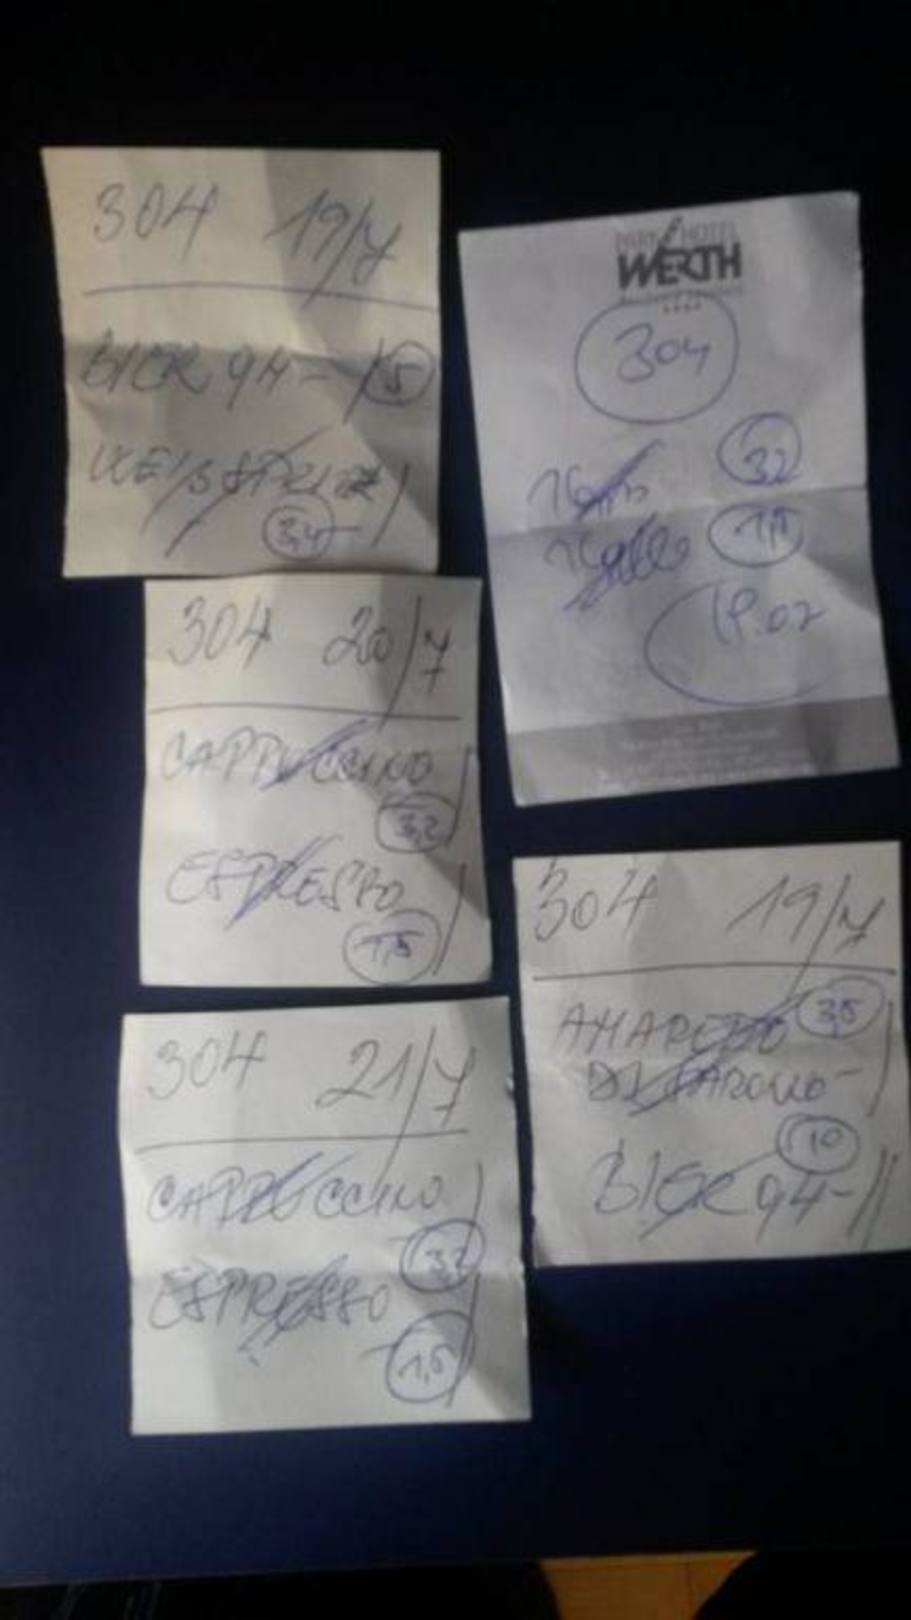 304 19/7
BIER 94- / 5
WEISSPRITZ /
3,4
PARK HOTEL
WERTH
304
32
1,5
19.07
304 20/7
CAPPUCCINO /
3,2
ESPRESSO /
1,5
304 19/7
AMARETTO 3,5
DI SARONNO- /
10
BIER 94- //
304 21/7
CAPPUCCINO /
3,2
ESPRESSO /
1,5